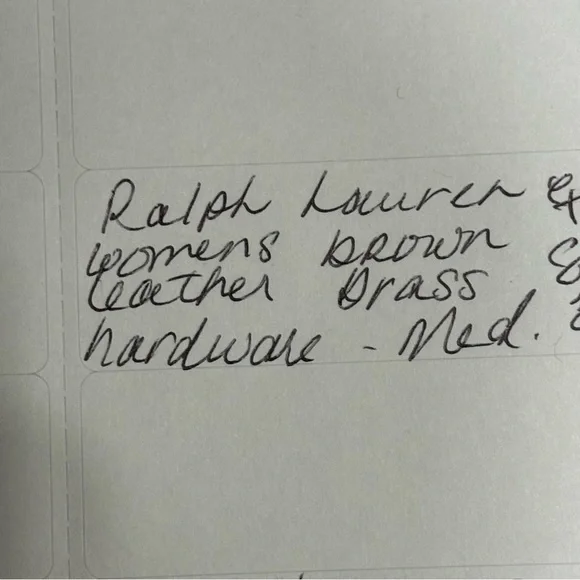 Ralph Lauren
womens brown
leather brass
hardware - Med.